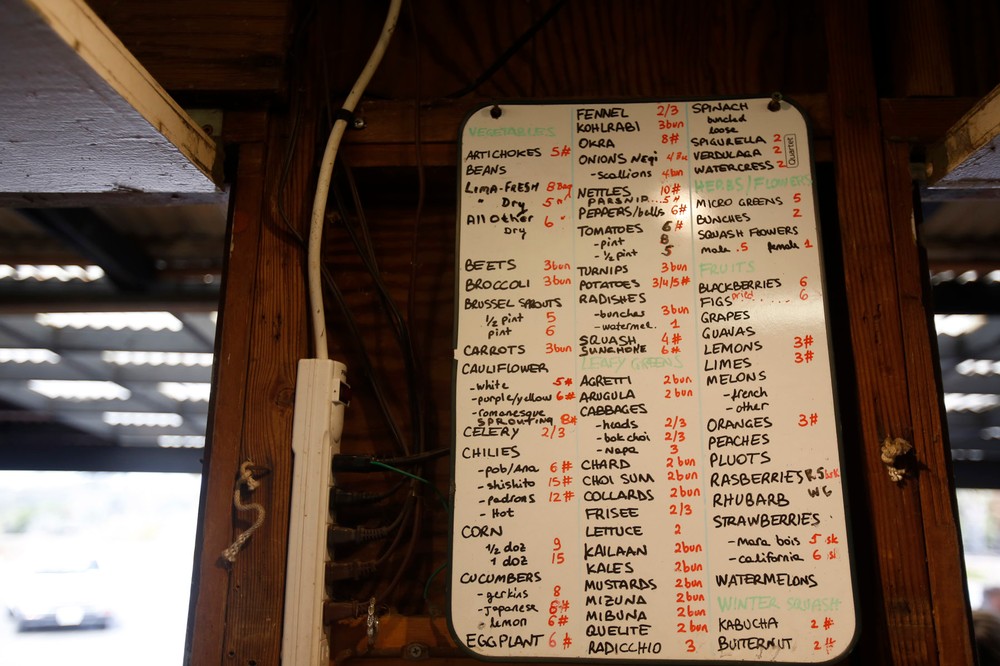 VEGETABLES
ARTICHOKES 5#
BEANS
LIMA-FRESH 8 Bag
" Dry 5 "
All Other 6 "
Dry
BEETS 3bun
BROCCOLI 3bun
BRUSSEL SPROUTS
1/2 pint 5
pint 6
CARROTS 3bun
CAULIFLOWER
-white 5#
-purple/yellow 6#
-romanesque
SPROUTING 8#
CELERY 2/3
CHILIES
-pob/Ana 6#
-shishito 15#
-padrons 12#
- Hot
CORN
1/2 doz 9
1 doz 15
CUCUMBERS
-gerkins 8
-japanese 6#
lemon 6#
EGGPLANT 6#
FENNEL 2/3
KOHLRABI 3bun
OKRA 8#
ONIONS Negi 4
-scallions 4bun
NETTLES 10#
PARSNIP...5
PEPPERS/bells 6#
TOMATOES 6#
-pint 8
-1/2 pint 5
TURNIPS 3bun
POTATOES 3/4/5#
RADISHES
-bunches 3bun
-watermel. 1
SQUASH 4#
SUNCHOKE 6#
LEAFY GREENS
AGRETTI 2bun
ARUGULA 2bun
CABBAGES
-heads 2/3
-bok choi 2/3
-napa 3
CHARD 2bun
CHOI SUM 2bun
COLLARDS 2bun
FRISEE 2/3
LETTUCE 2
KAILAAN 2bun
KALES 2bun
MUSTARDS 2bun
MIZUNA 2bun
MIBUNA 2bun
QUELITE 2bun
RADICCHIO 3
SPINACH
bunched
loose
SPIGURELLA 2
VERDULAGA 2
WATERCRESS 2
Quarter
HERBS/FLOWERS
MICRO GREENS 5
BUNCHES 2
SQUASH FLOWERS
male .5 female 1
FRUITS
BLACKBERRIES 6
FIGS dried ...... 6
GRAPES
GUAVAS
LEMONS 3#
LIMES 3#
MELONS
-french
-other
ORANGES 3#
PEACHES
PLUOTS
RASBERRIES
RHUBARB
STRAWBERRIES
-mara bois 5 sk
-california 6
WATERMELONS
WINTER SQUASH
KABUCHA 2#
BUTTERNUT 2#